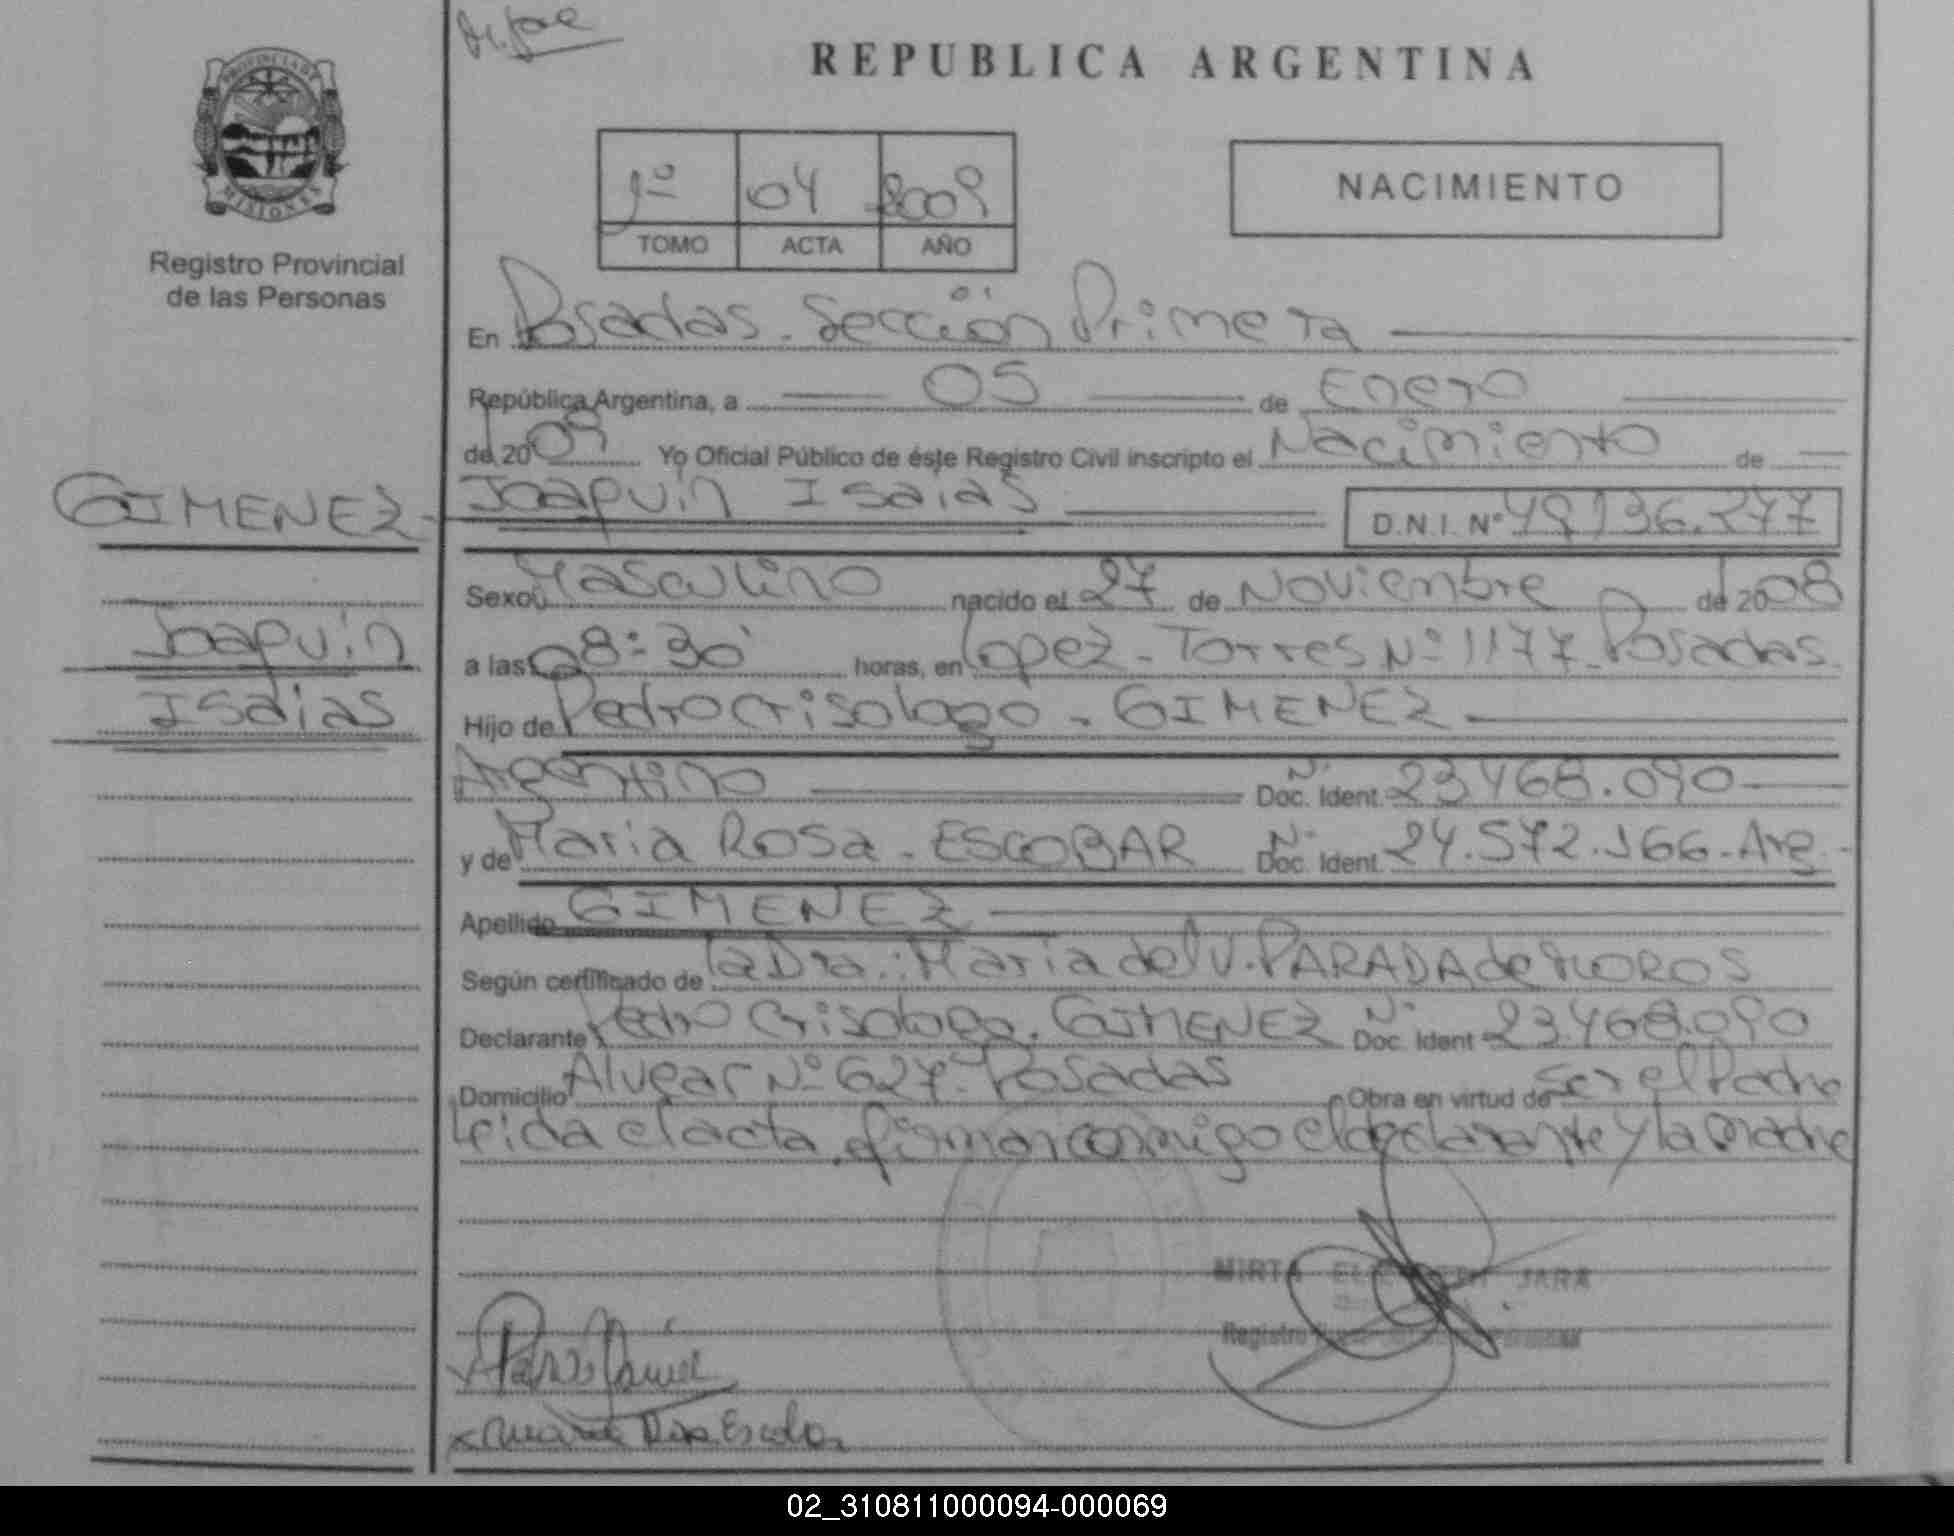 PROVINCIA DE
MISIONES
Registro Provincial
de las Personas
REPUBLICA ARGENTINA
1º 04 2009
TOMO ACTA AÑO
NACIMIENTO
En Posadas - Sección Primera
República Argentina, a 05 de Enero
de 20 09 Yo Oficial Público de éste Registro Civil inscripto el Nacimiento de
GIMENEZ - Joaquín Isaias D.N.I. Nº 49.136.277
Sexo Masculino nacido el 27 de Noviembre de 20 08
Joaquín
a las 08:30' horas, en Lopez - Torres Nº 1177 - Posadas.
Isaias
Hijo de Pedro Crisologo - GIMENEZ
Argentino Nº Doc. Ident. 23.468.090
y de Maria Rosa - ESCOBAR Nº Doc. Ident. 24.572.166 - Arg.
Apellido GIMENEZ
Según certificado de la Dra.: Maria del V. PARADA de MOROS
Declarante Pedro Crisologo. GIMENEZ Nº Doc. Ident 23.468.090
Domicilio Alvear Nº 627 - Posadas Obra en virtud de ser el Padre
Leida el acta, firman conmigo el declarante y la madre
MIRTA JARA
Registro
Maria Rosa Escobar
02_310811000094-000069